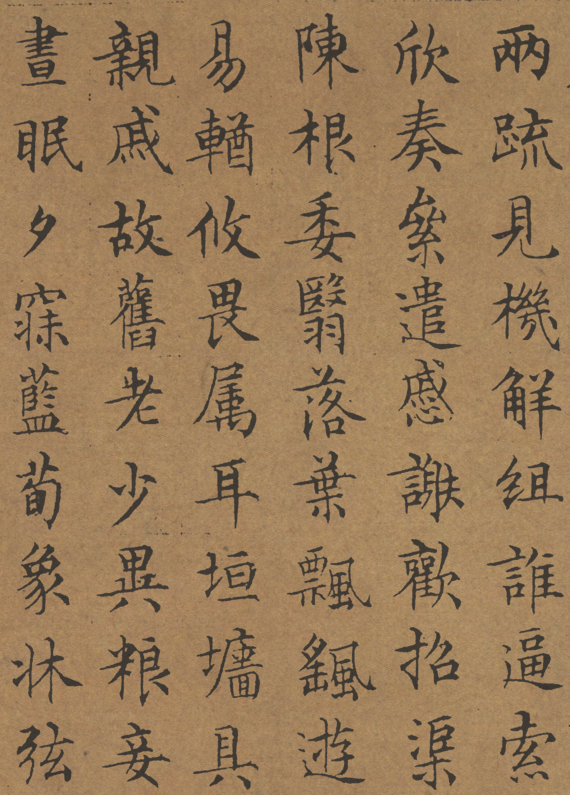 兩疏見機解組誰逼索
欣奏絫遣慼謝歡招渠
陳根委翳落葉飄颻遊
易輶攸畏属耳垣墻具
親戚故舊老少異粮妾
晝眠夕寐藍荀象牀弦